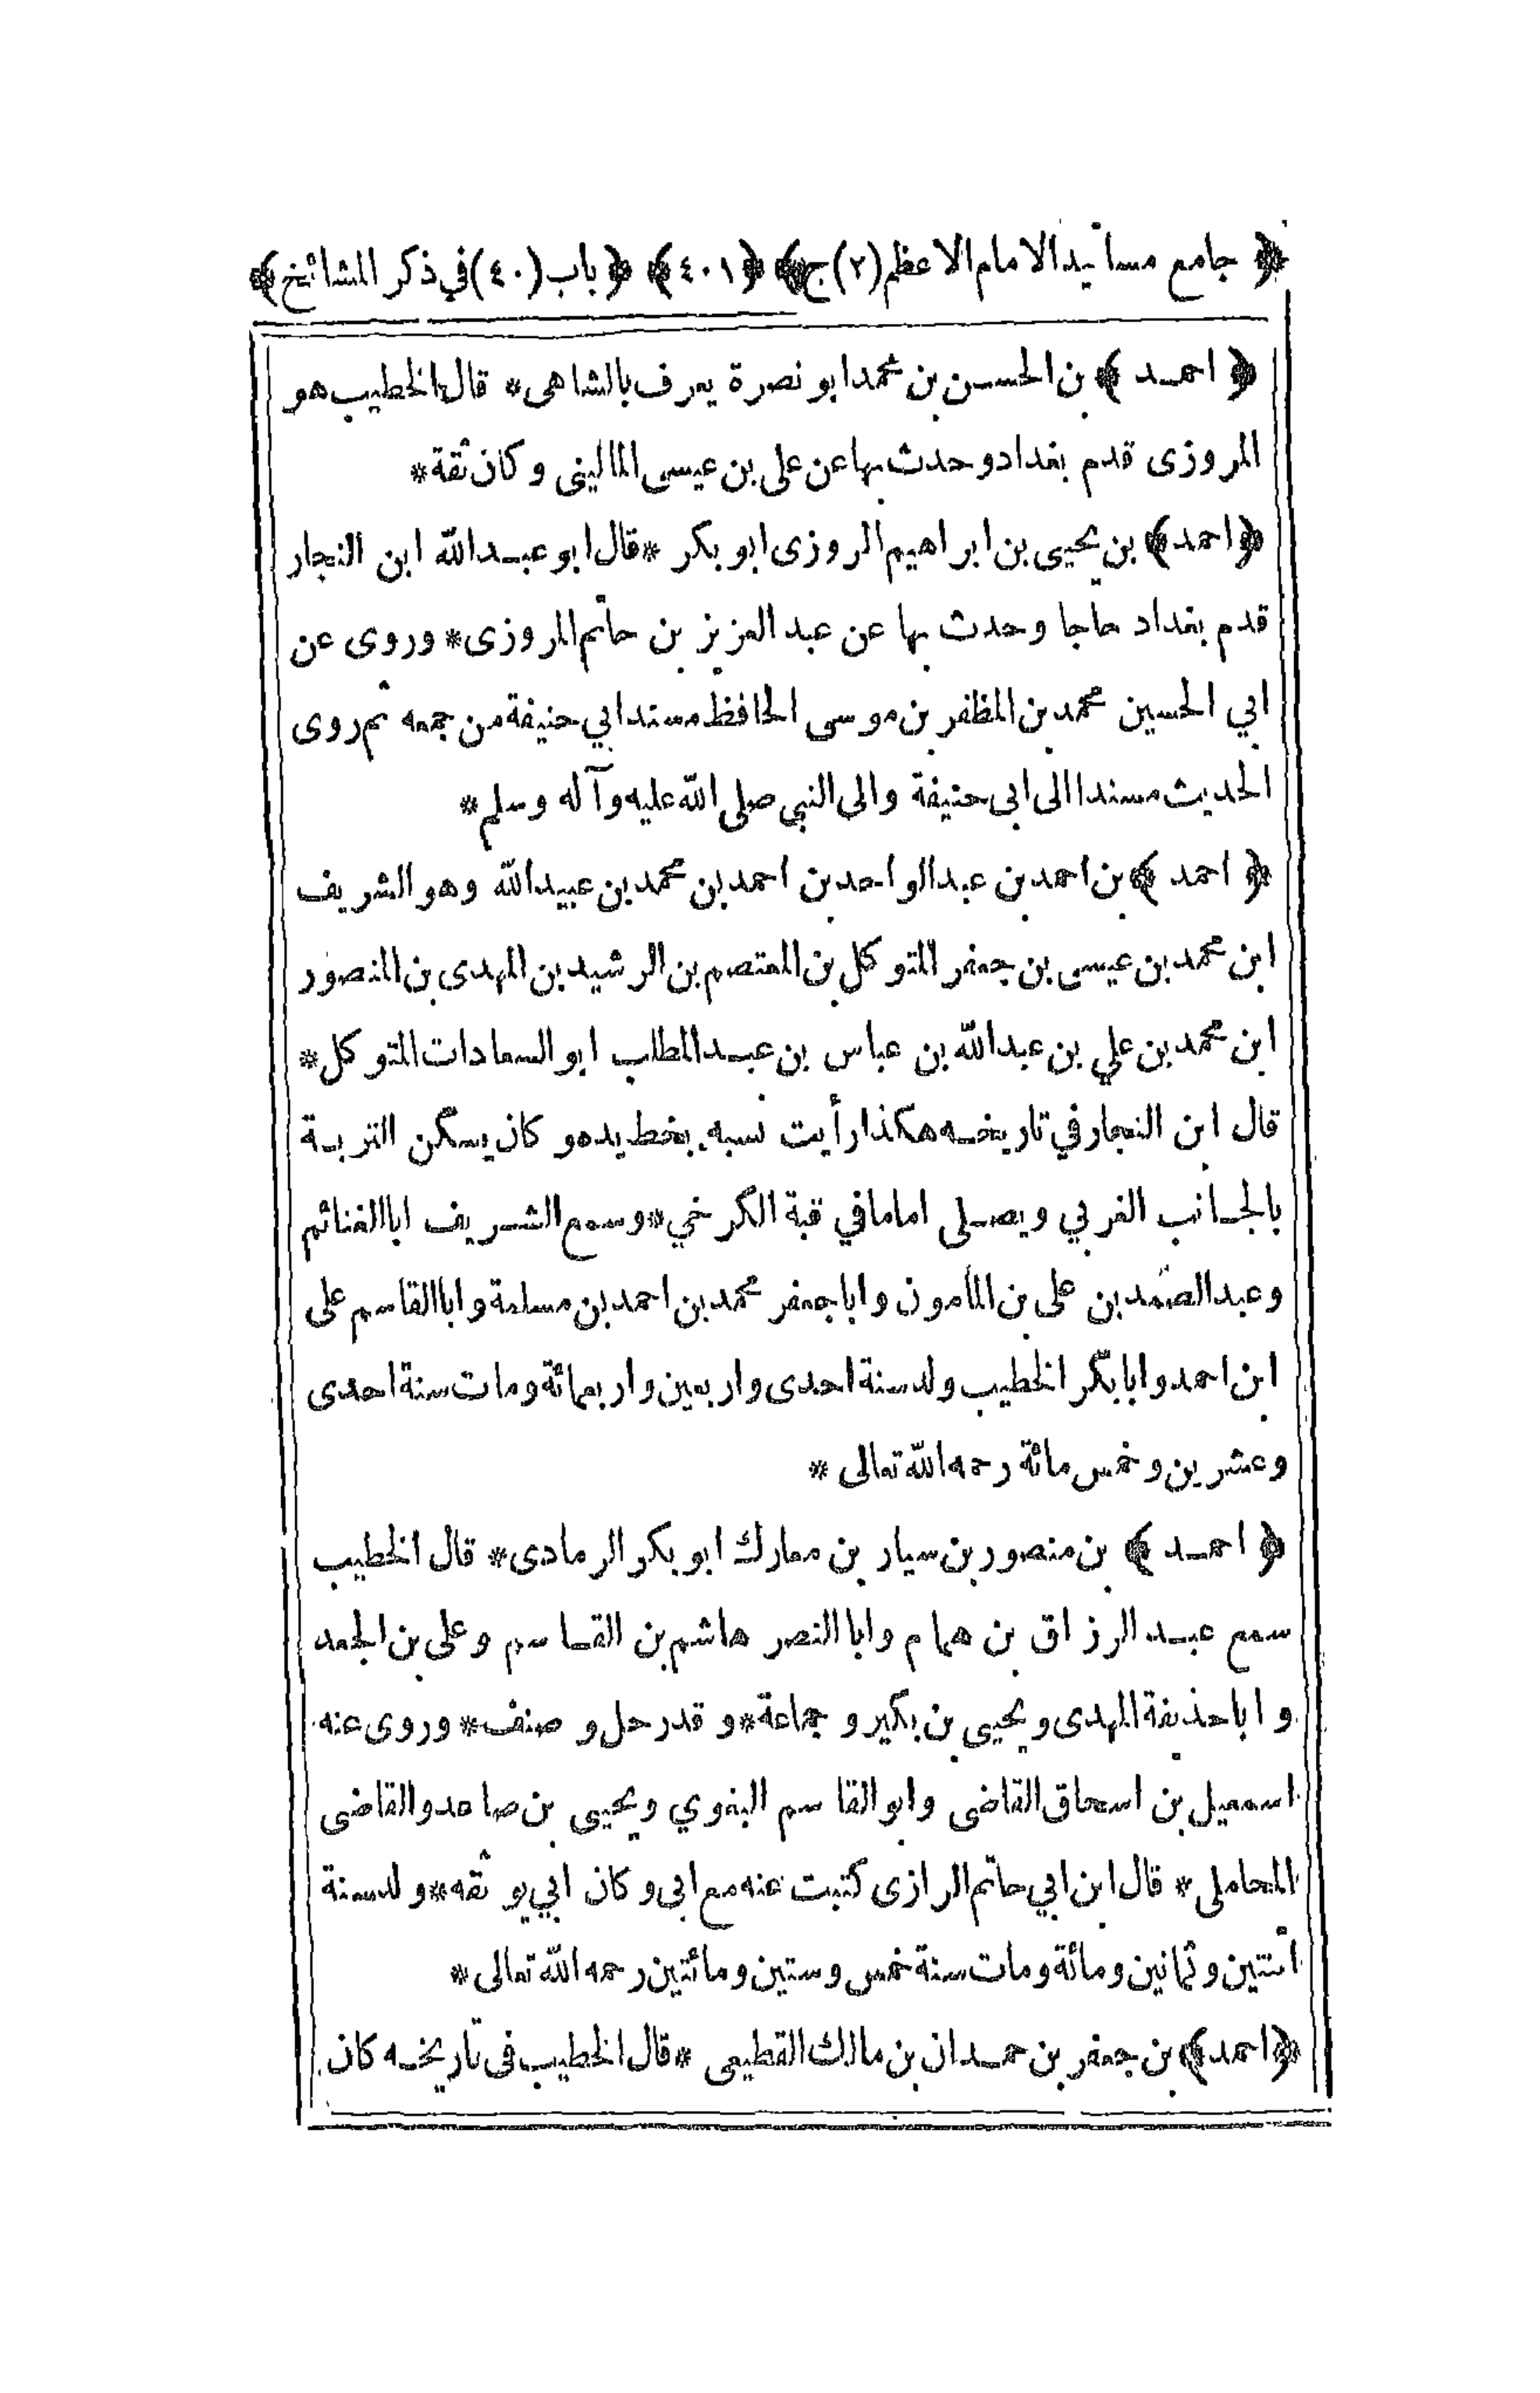 ﴿ جامع مسانيد الامام الاعظم (٢) ج ﴾ ﴿ ٤٠١ ﴾ ﴿ باب (٤٠) في ذكر المشائخ ﴾
﴿ احمد ﴾ بن الحسن بن محمد ابو نصرة يعرف بالشاهى * قال الخطيب هو
المروزى قدم بغداد وحدث بها عن على بن عيسى المالينى وكان ثقة *
﴿ احمد ﴾ بن يحيى بن ابراهيم المروزى ابو بكر * قال ابو عبد الله ابن النجار
قدم بغداد حاجا وحدث بها عن عبد العزيز بن حاتم المروزى * وروى عن
ابي الحسين محمد بن المظفر بن موسى الحافظ مسند ابي حنيفة من جمعه ثم روى
الحديث مسندا الى ابى حنيفة والى النبي صلى الله عليه وآله وسلم *
﴿ احمد ﴾ بن احمد بن عبد الواحد بن احمد بن محمد بن عبيد الله وهو الشريف
ابن محمد بن عيسى بن جعفر المتوكل بن المعتصم بن الرشيد بن المهدى بن المنصور
ابن محمد بن علي بن عبد الله بن عباس بن عبد المطلب ابو السعادات المتوكل *
قال ابن النجار في تاريخه هكذا رأيت نسبه بخط يده و كان يسكن التربة
بالجانب الغربي ويصلى اماما في قبة الكرخي * وسمع الشريف ابا الغنائم
وعبد الصمد بن على بن المأمون وابا جعفر محمد بن احمد بن مسلمة وابا القاسم على
ابن احمد وابا بكر الخطيب ولد سنة احدى واربعين واربعمائة ومات سنة احدى
وعشرين وخمس مائة رحمه الله تعالى *
﴿ احمد ﴾ بن منصور بن سيار بن معارك ابو بكر الرمادى * قال الخطيب
سمع عبد الرزاق بن همام وابا النصر هاشم بن القاسم وعلى بن الجعد
وابا حذيفة المهدى ويحيى بن بكير و جماعة * وقد رحل و صنف * وروى عنه
اسمعيل بن اسحاق القاضى وابو القاسم البغوي ويحيى بن صاعد والقاضى
المحاملى * قال ابن ابي حاتم الرازى كتبت عنه مع ابى وكان ابي يوثقه * ولد سنة
اثنتين وثمانين ومائة ومات سنة خمس وستين ومائتين رحمه الله تعالى *
﴿ احمد ﴾ بن جعفر بن حمدان بن مالك القطيعى * قال الخطيب فى تاريخه كان